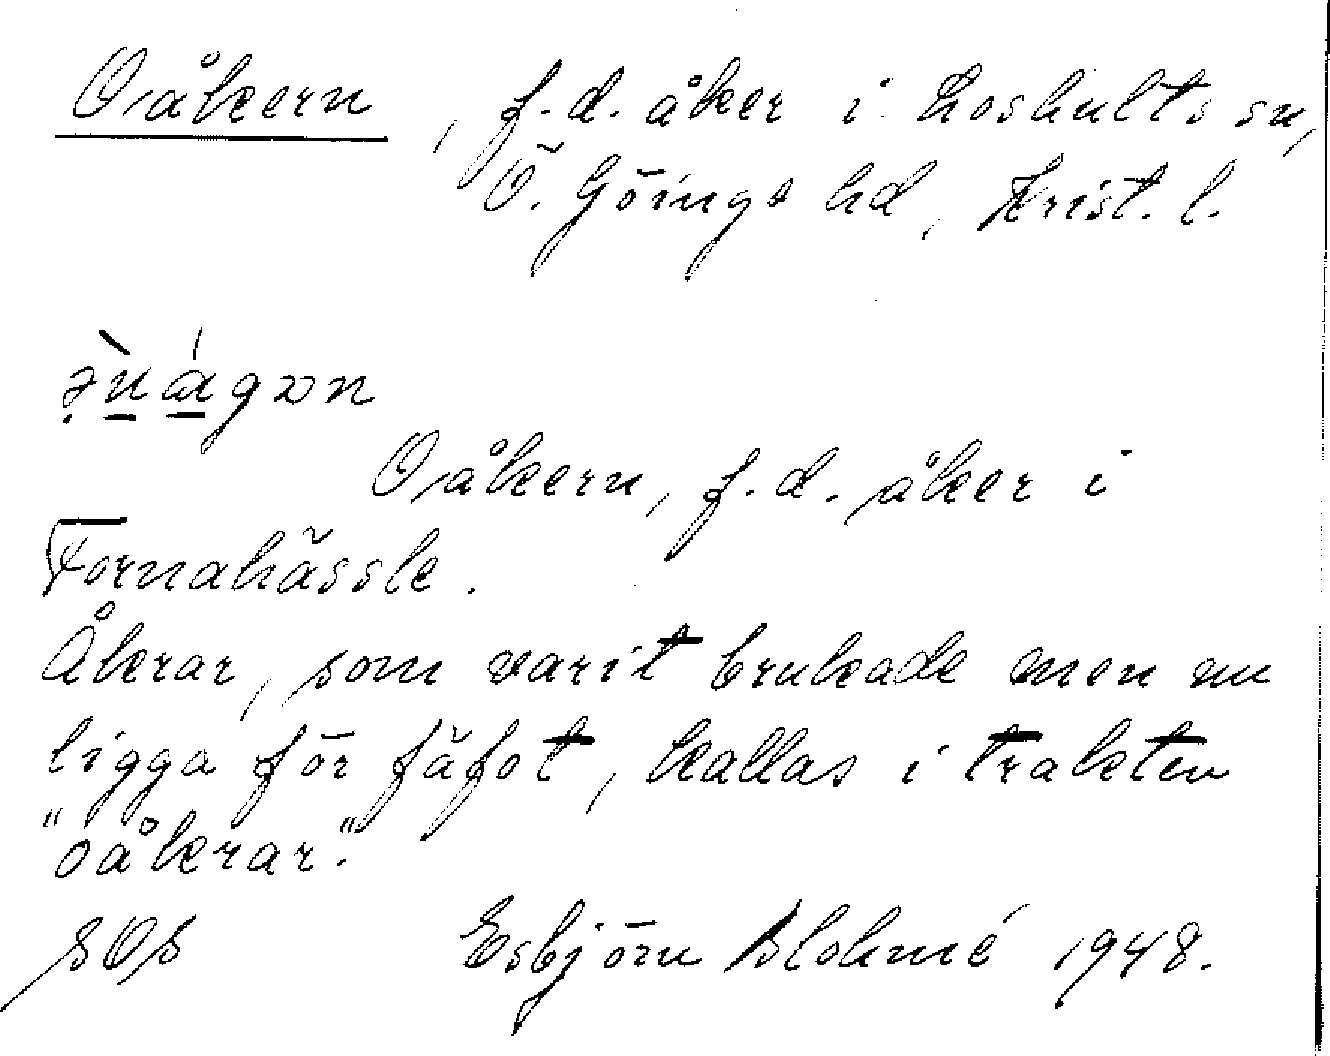 Oåkern, f.d. åker i Loshults sn,
Ö. Göinge hd, Krist. l.
Oåkern, f.d. åker i
Fornahässle.
Åkrar, som varit brukade men nu
ligga för fäfot, kallas i trakten
"oåkrar".
SOS Esbjörn Blohmé 1948.